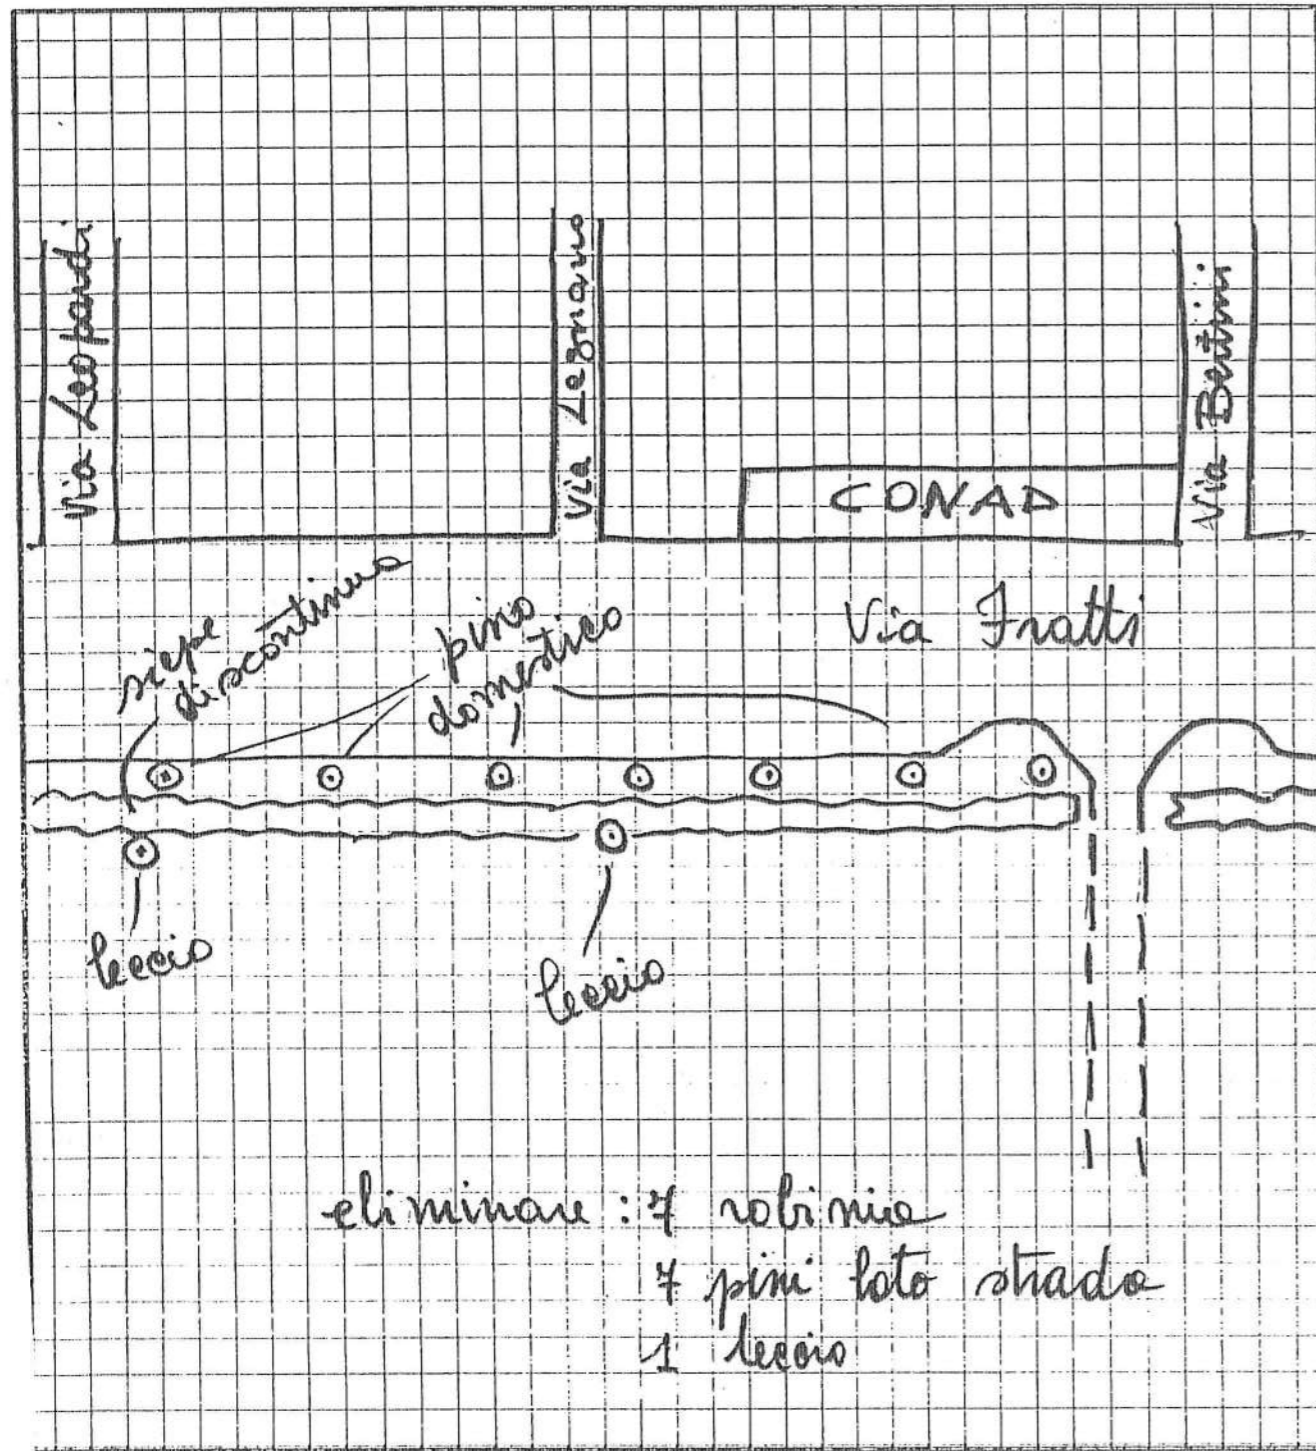 Via Leopardi
Via Legnano
Via Bertini
CONAD
Via Fratti
siepe
discontinua
pino
domestico
leccio
leccio
eliminare : 7 robinia
7 pini lato strada
1 leccio